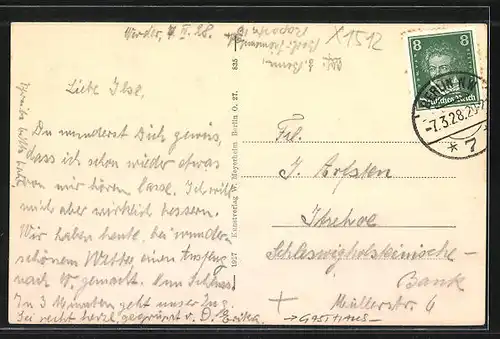 Werder, 7. III. 28.
X1512
Liebe Ilse,
Du wunderst Dich gewiss,
dass ich schon wieder etwas
von mir hören lasse. Ich will
mich aber wirklich bessern.
Wir haben heute, bei wunder-
schönem Wetter einen Ausflug
nach W. gemacht. Zum Schluss
In 3 Minuten geht unser Zug.
Sei recht herzl. gegrüsst v. D. Erika.
Schreibe bitte bald
1907 Kunstverlag W. Meyerheim, Berlin O. 27. 835
8 8
Deutsches Reich
BERLIN NW
-7.3.28.20
* 7
Frl.
I. Arfsten
Itzehoe
Schleswigholsteinische-
Bank
Müllerstr. 6
→ GASTHAUS -